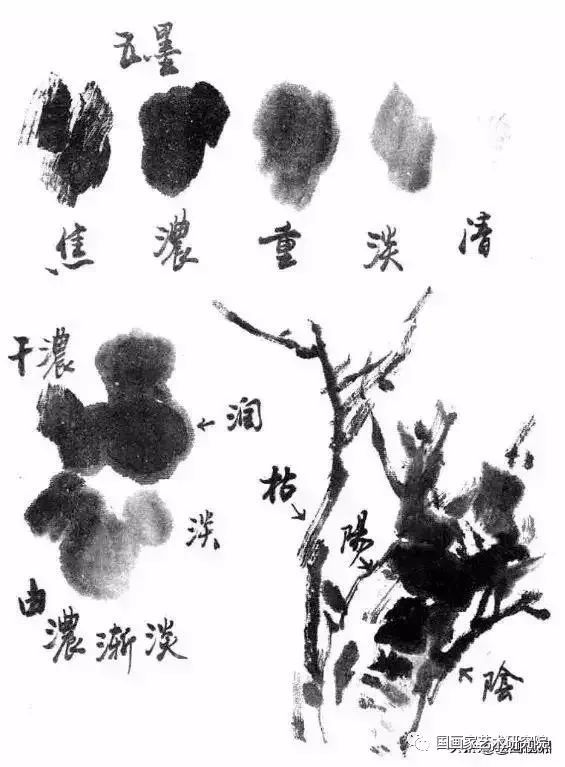 五墨
焦 濃 重 淡 清
干濃
润
淡
由濃漸淡
枯
陽
陰
国画家艺术研究院